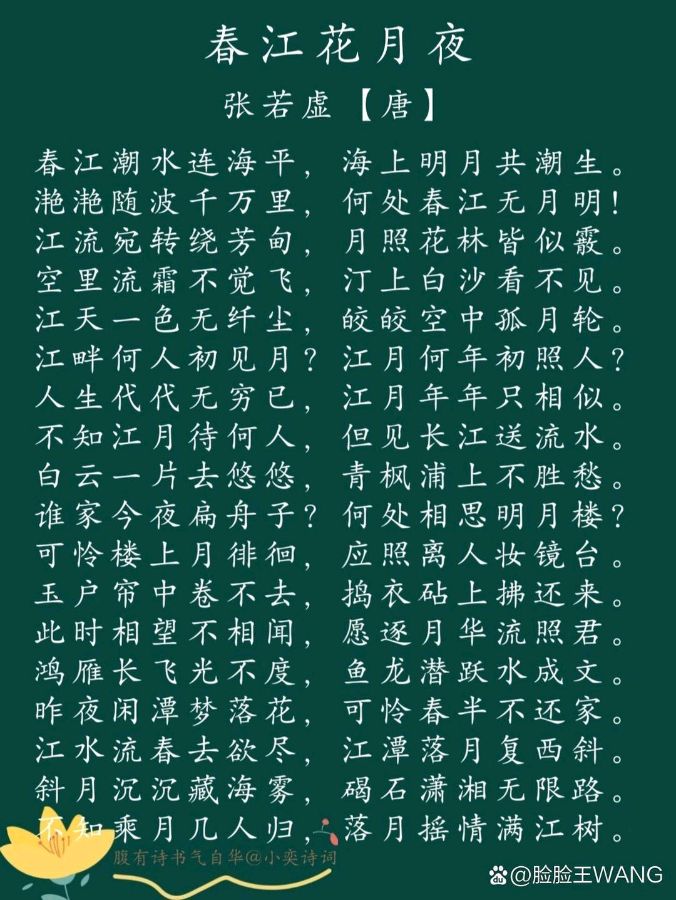 春江花月夜
张若虚【唐】
春江潮水连海平，海上明月共潮生。
滟滟随波千万里，何处春江无月明！
江流宛转绕芳甸，月照花林皆似霰。
空里流霜不觉飞，汀上白沙看不见。
江天一色无纤尘，皎皎空中孤月轮。
江畔何人初见月？江月何年初照人？
人生代代无穷已，江月年年只相似。
不知江月待何人，但见长江送流水。
白云一片去悠悠，青枫浦上不胜愁。
谁家今夜扁舟子？何处相思明月楼？
可怜楼上月徘徊，应照离人妆镜台。
玉户帘中卷不去，捣衣砧上拂还来。
此时相望不相闻，愿逐月华流照君。
鸿雁长飞光不度，鱼龙潜跃水成文。
昨夜闲潭梦落花，可怜春半不还家。
江水流春去欲尽，江潭落月复西斜。
斜月沉沉藏海雾，碣石潇湘无限路。
不知乘月几人归，落月摇情满江树。
腹有诗书气自华@小奕诗词
@脸脸王WANG